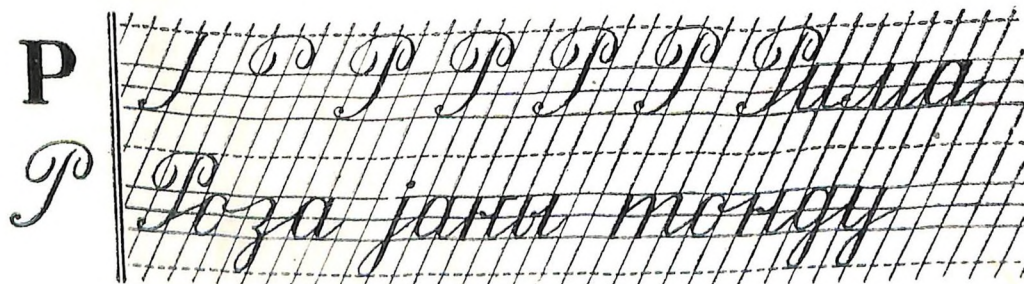 Р Р Р Р Р Рима
Р Роза јаны тонду